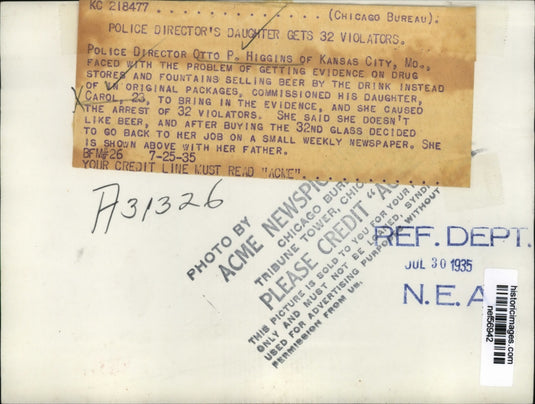 KC 218477 . . . . . . . . . . . . . . . (CHICAGO BUREAU).
POLICE DIRECTOR'S DAUGHTER GETS 32 VIOLATORS.
POLICE DIRECTOR OTTO P. HIGGINS OF KANSAS CITY, MO.,
FACED WITH THE PROBLEM OF GETTING EVIDENCE ON DRUG
STORES AND FOUNTAINS SELLING BEER BY THE DRINK INSTEAD
OF IN ORIGINAL PACKAGES, COMMISSIONED HIS DAUGHTER,
CAROL, 23, TO BRING IN THE EVIDENCE, AND SHE CAUSED
THE ARREST OF 32 VIOLATORS. SHE SAID SHE DOESN'T
LIKE BEER, AND AFTER BUYING THE 32ND GLASS DECIDED
TO GO BACK TO HER JOB ON A SMALL WEEKLY NEWSPAPER. SHE
IS SHOWN ABOVE WITH HER FATHER.
BFM#26 7-25-35
YOUR CREDIT LINE MUST READ "ACME" . . . . . . . . .
A31326
PHOTO BY
ACME NEWSPIC
CHICAGO BUR
TRIBUNE TOWER, CHIC
PLEASE CREDIT "AC
THIS PICTURE IS SOLD TO YOU FOR YOUR
ONLY AND MUST NOT BE LOANED, SYND
USED FOR ADVERTISING PURPOSE WITHOUT
PERMISSION FROM US.
REF. DEPT.
JUL 30 1935
N.E.A.
historicimages.com
nef56942